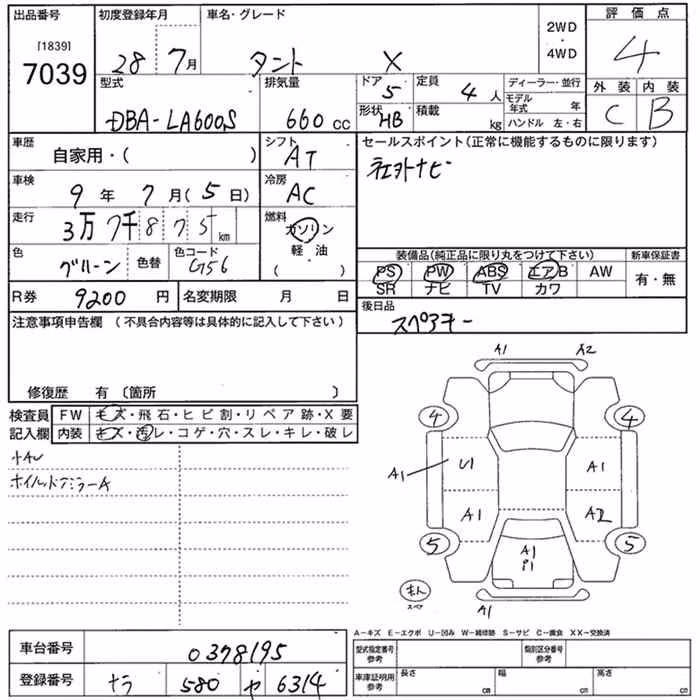 出品番号 初度登録年月 車名・グレード 2WD・4WD 評価点
[1839]
7039 28 7月 タント X 4
型式 排気量 ドア 5 定員 4人 ディーラー・並行 外装 内装
DBA-LA600S 660cc 形状 HB 積載 kg モデル年式 年 C B
ハンドル 左・右
車歴 自家用・( ) シフト AT セールスポイント(正常に機能するものに限ります)
車検 9年7月(5日) 冷房 AC 社外ナビ
走行 3万7千875km 燃料 ガソリン
軽・油
( )
色 グリーン 色替 色コード G56 装備品(純正品に限り丸をつけて下さい) 新車保証書
PS PW ABS エアB AW 有・無
SR ナビ TV カワ
R券 9200円 名変期限 月 日 後日品
スペアキー
注意事項申告欄(不具合内容等は具体的に記入して下さい)
修復歴 有〔箇所 〕
検査員 FW キズ・飛石・ヒビ割・リペア跡・X要
記入欄 内装 キズ・汚レ・コゲ・穴・スレ・キレ・破レ
A1 A2
4 4
A1 U1 A1
A1 A2
5 5
A1
スペア
A1
A-キズ E-エクボ U-凹み W-補修跡 S-サビ C-腐食 XX-交換済
車台番号 0378195 型式指定番号 参考 類別区分番号 参考
登録番号 ナラ 580 や 6314 車庫証明用 参考 長さ cm 幅 cm 高さ cm